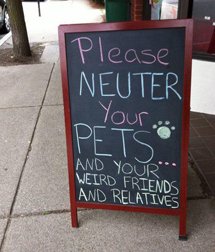 Please
NEUTER
Your
PETS...
AND YOUR
WEIRD FRIENDS
AND RELATIVES